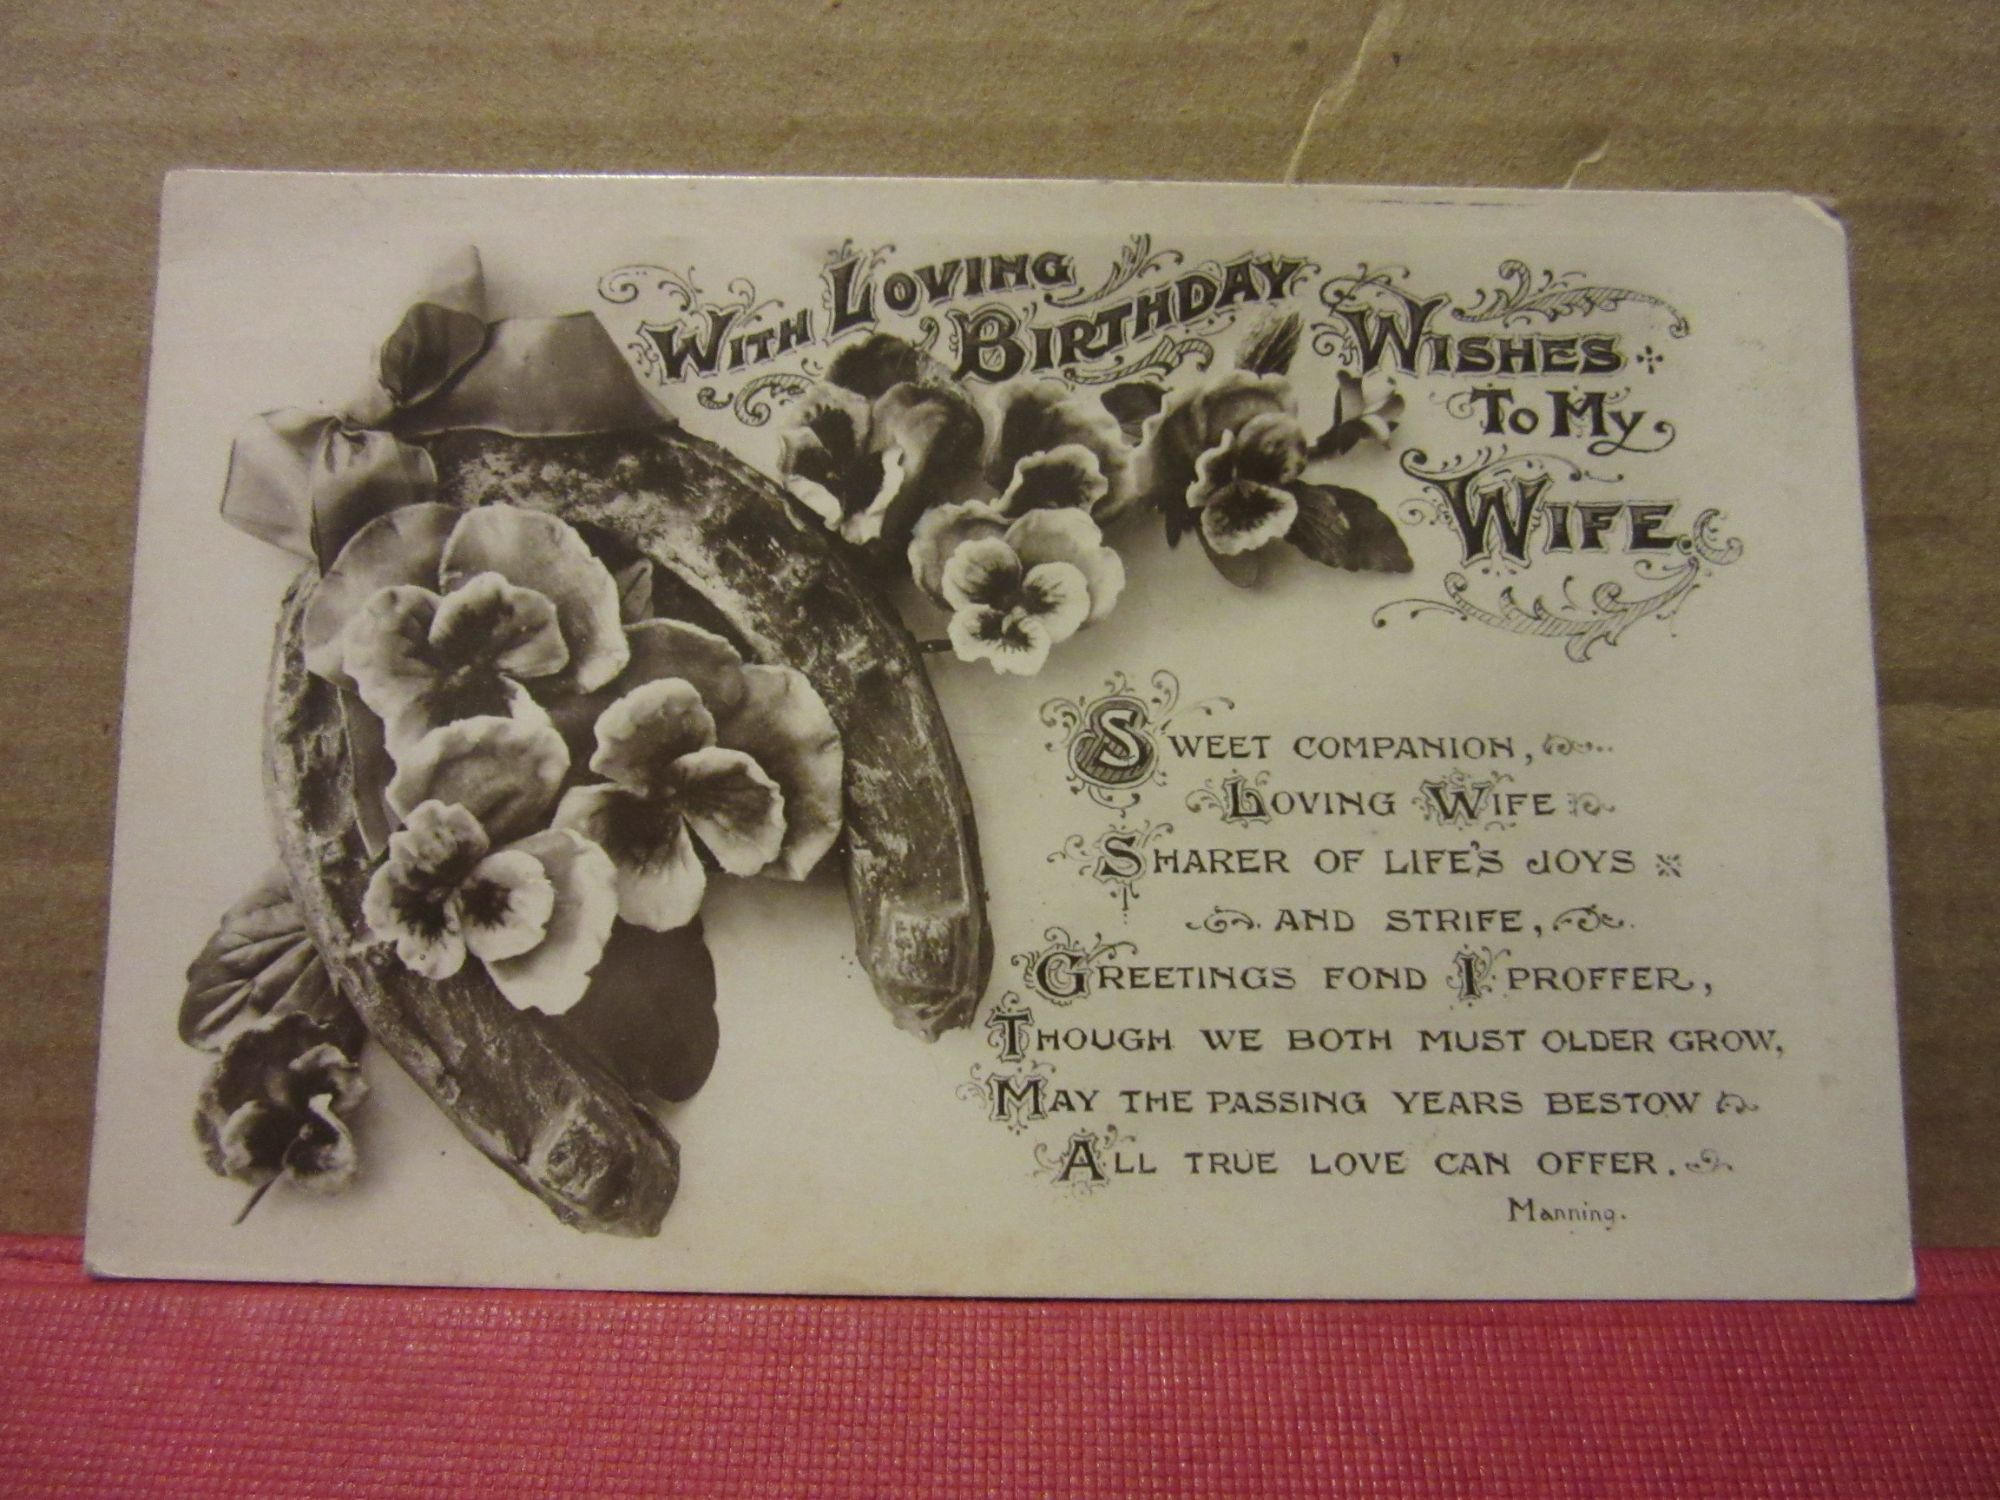 With Loving
Birthday
Wishes
To My
Wife.
Sweet companion,
Loving Wife
Sharer of life's joys
and strife,
Greetings fond I proffer,
Though we both must older grow,
May the passing years bestow
All true love can offer.
Manning.